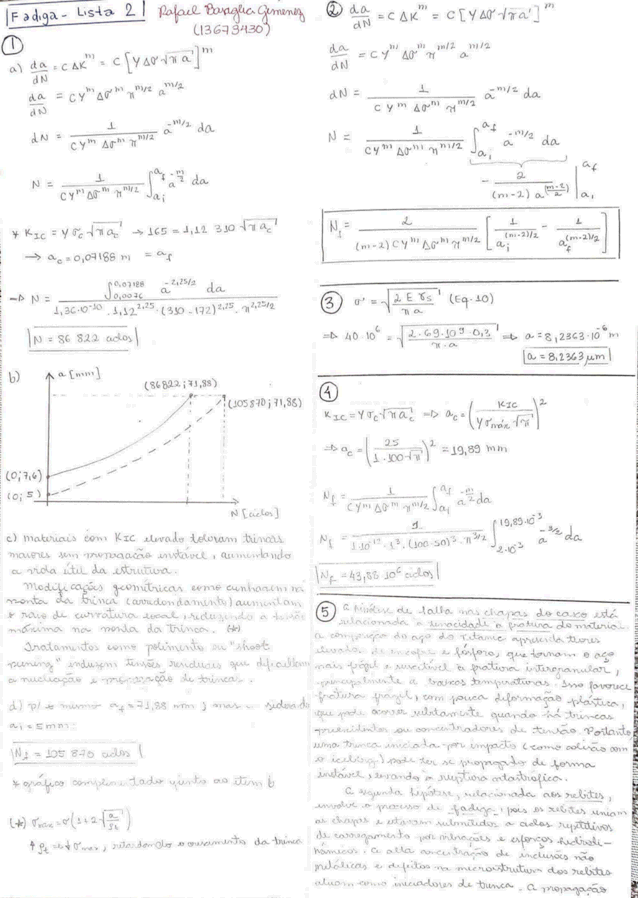 Fadiga - Lista 2
Rafael Basaglia Gimenez
(13679430)
①
a) da/dN = C ΔK^m = C [Y Δσ √(π a)]^m
da/dN = C Y^m Δσ^m π^(m/2) a^(m/2)
dN = 1/(C Y^m Δσ^m π^(m/2)) a^(-m/2) da
N = 1/(C Y^m Δσ^m π^(m/2)) ∫_{ai}^{af} a^(-m/2) da
* K_IC = Y σc √(π ac) → 165 = 1,12 310 √(π ac)
→ ac = 0,07188 m = af
⇒ N = ∫_{0,0076}^{0,07188} a^(-2,25/2) da / (1,36·10^-10 · 1,12^2,25 · (310-172)^2,25 · π^(2,25/2))
N = 86 822 ciclos
b)
a [mm]
(86822; 71,88)
(105870; 71,88)
(0; 7,6)
(0; 5)
N [ciclos]
c) materiais com KIC elevado toleram trincas
maiores sem propagação instável, aumentando
a vida útil da estrutura.
Modificações geométricas como cunharem na
ponta da trinca (arredondamento) aumentam
o raio de curvatura local, reduzindo a tensão
máxima na ponta da trinca. (*)
Tratamentos como polimento ou "shoot
peening" induzem tensões residuais que dificultam
a nucleação e propagação de trincas.
d) p/ o mesmo af = 71,88 mm, mas
ai = 5 mm:
N = 105 870 ciclos
* gráfico complementado junto ao item b
(*) σmax = σ(1+2√(a/ρt))
↑ρt ⇒ ↓σmax, retardando o crescimento da trinca
② da/dN = C ΔK^m = C [Y Δσ √(π a)]^m
da/dN = C Y^m Δσ^m π^(m/2) a^(m/2)
dN = 1/(C Y^m Δσ^m π^(m/2)) a^(-m/2) da
N = 1/(C Y^m Δσ^m π^(m/2)) ∫_{ai}^{af} a^(-m/2) da
- 2/((m-2) a^((m-2)/2)) |_{ai}^{af}
N_f = 2/((m-2) C Y^m Δσ^m π^(m/2)) [1/ai^((m-2)/2) - 1/af^((m-2)/2)]
③ σ = √(2 E γs/(π a)) (Eq. 10)
⇒ 40·10^6 = √(2·69·10^9·0,3/(π·a)) ⇒ a = 8,2363·10^-6 m
a = 8,2363 μm
④
K_IC = Y σc √(π ac) ⇒ ac = (KIC/(Y σmáx √π))^2
⇒ ac = (25/(1·100·√π))^2 = 19,89 mm
N_f = 1/(C Y^m Δσ^m π^(m/2)) ∫_{ai}^{af} a^(-m/2) da
N_f = 1/(1·10^-12 · 1^3 · (100-50)^3 · π^(3/2)) ∫_{2·10^-3}^{19,89·10^-3} a^(-3/2) da
N_f = 43,88 10^6 ciclos
⑤ A hipótese de falha nas chapas do casco está
relacionada à tenacidade à fratura do material.
a composição do aço do titanic apresenta teores
elevados de enxofre e fósforo, que tornam o aço
mais frágil e suscetível à fratura intergranular,
principalmente a baixas temperaturas. Isso favorece
fratura frágil, com pouca deformação plástica,
que pode ocorrer subitamente quando há trincas
preexistentes ou concentradores de tensão. Portanto,
uma trinca iniciada por impacto (como colisão com
o iceberg) pode ter se propagado de forma
instável, levando à ruptura catastrófica.
A segunda hipótese, relacionada aos rebites,
envolve o processo de fadiga, pois os rebites uniam
as chapas e estavam submetidos a ciclos repetitivos
de carregamento por vibrações e esforços hidrodi-
nâmicos. A alta concentração de inclusões não
metálicas e defeitos na microestrutura dos rebites
atuam como iniciadores de trinca. A propagação